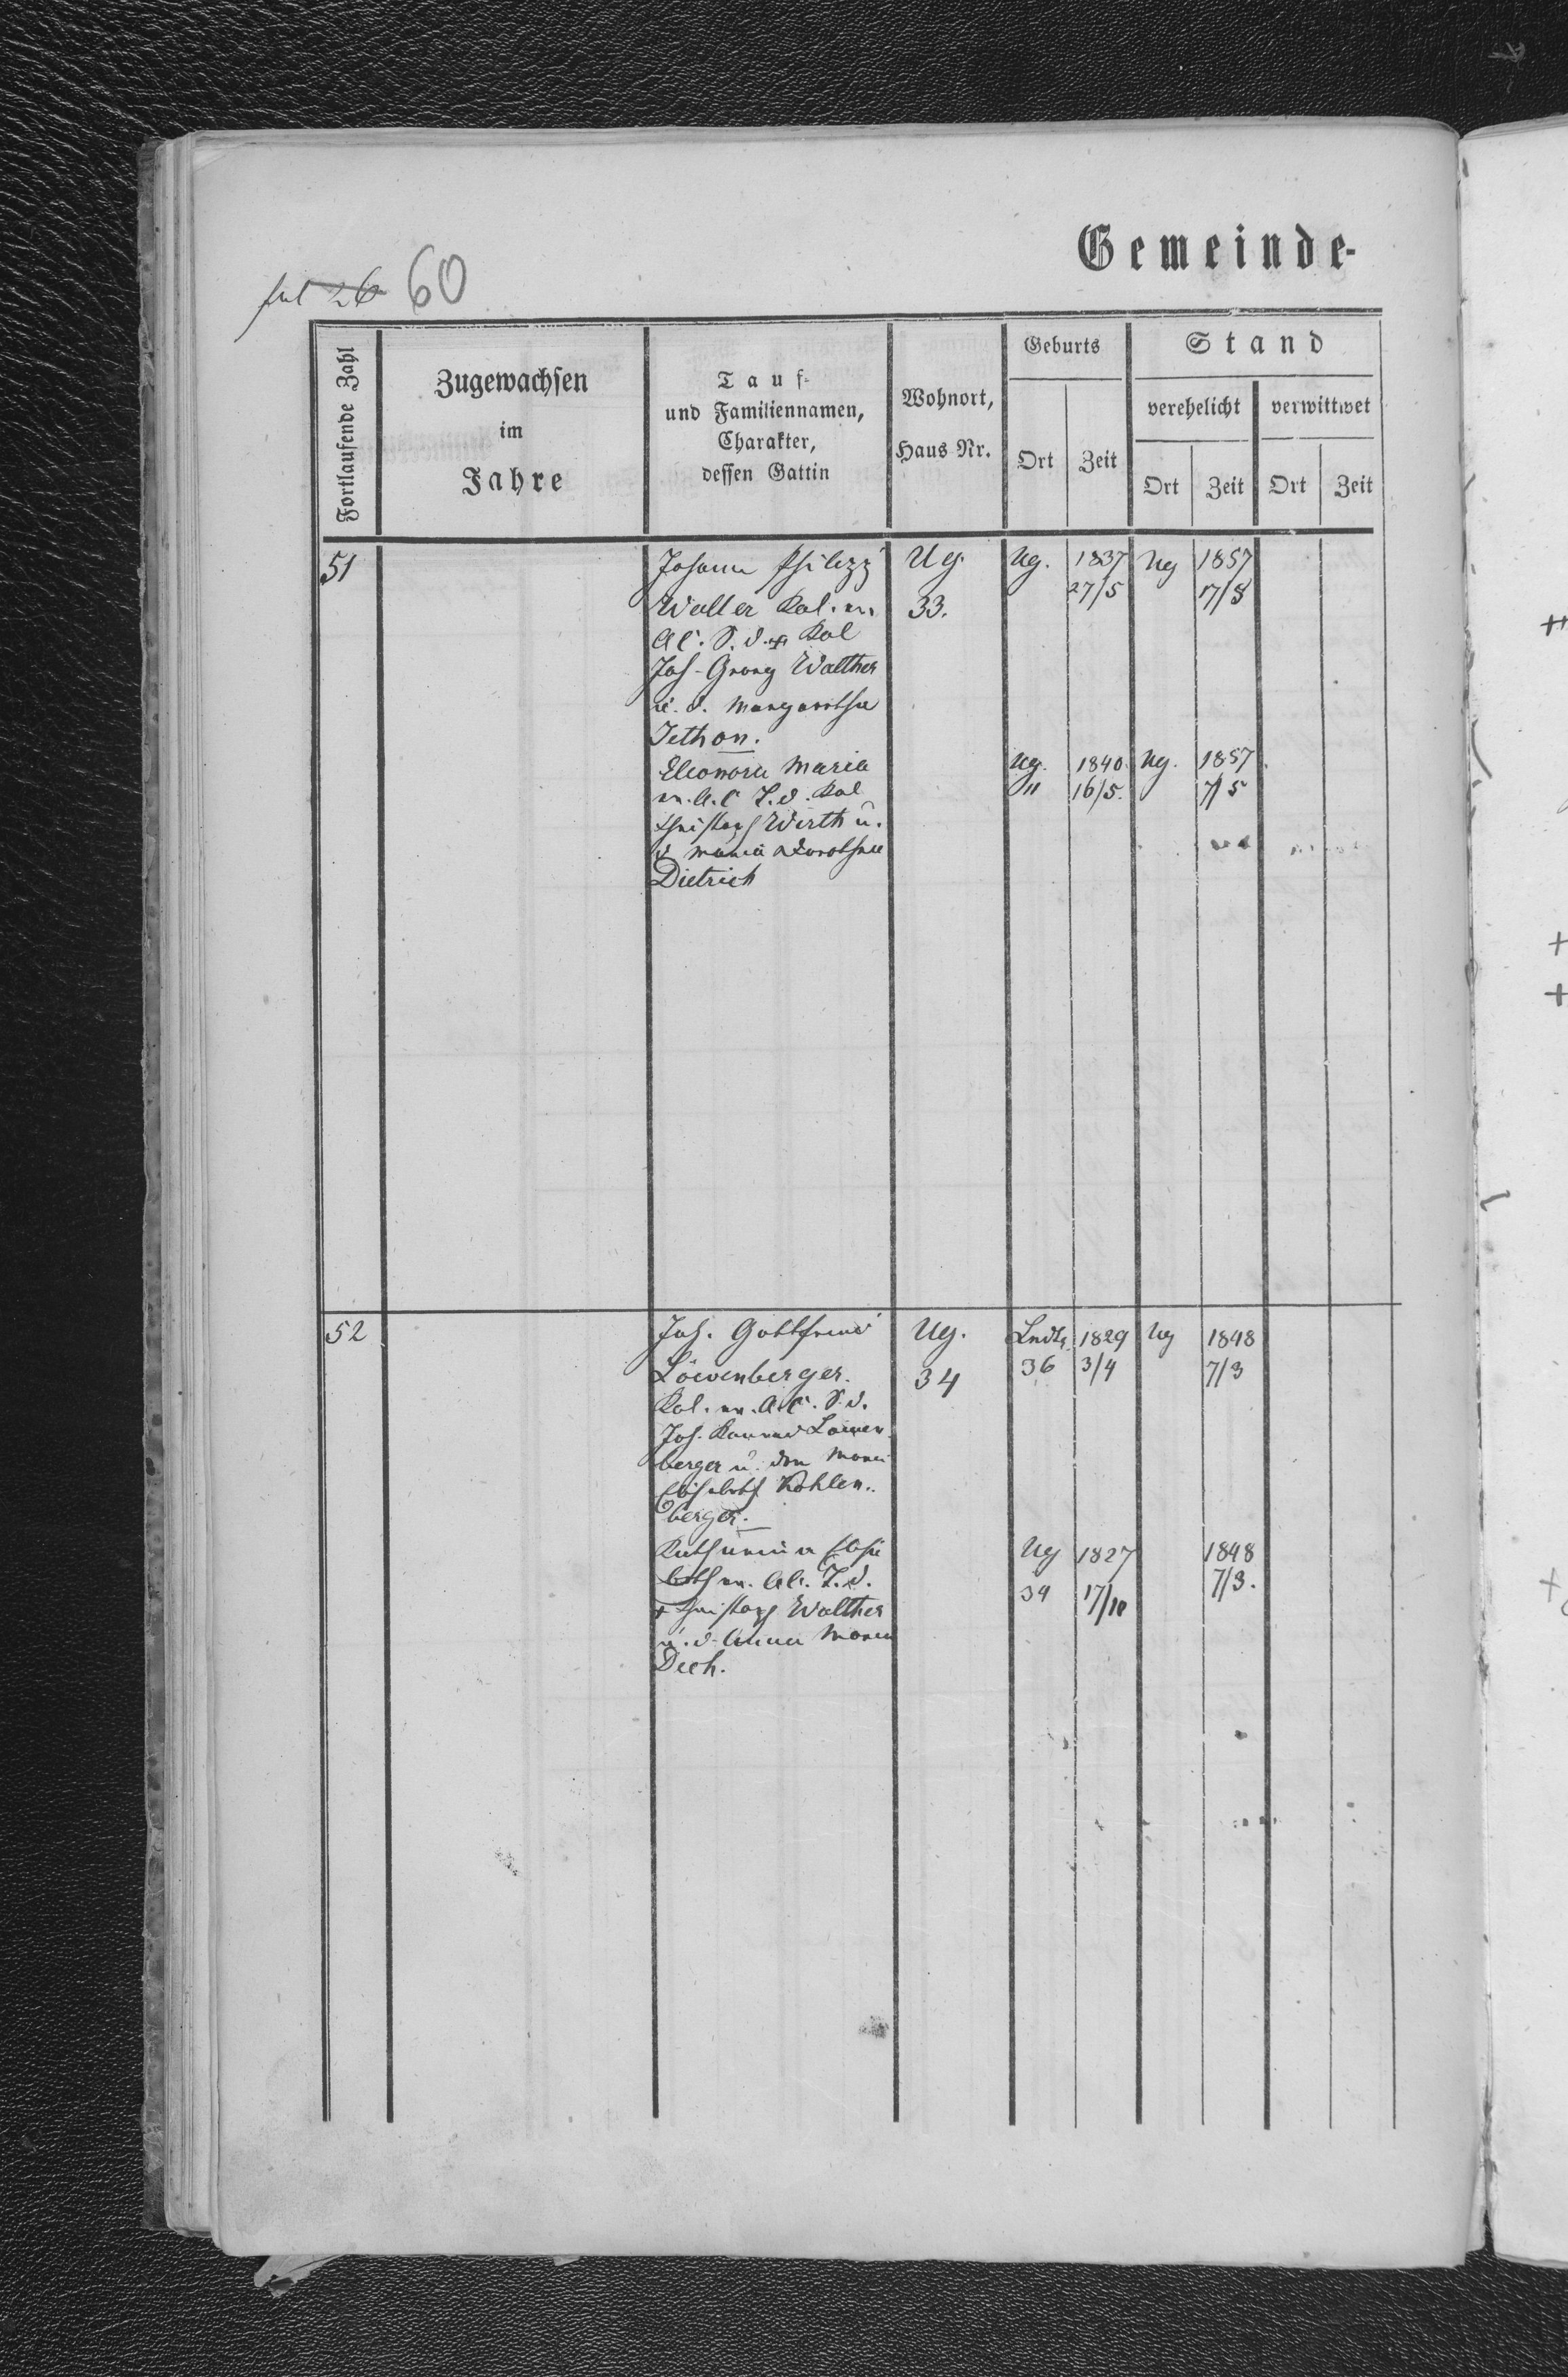 Gemeinde-
fol 26 60
Fortlaufende Zahl
Zugewachsen
im
Jahre
Tauf-
und Familiennamen,
Charakter,
dessen Gattin
Wohnort,
Haus Nr.
Geburts
Ort Zeit
Stand
verehelicht verwittwet
Ort Zeit Ort Zeit
51 Johann Philipp Ug. Ug. 1837 Ug 1857
Walter Kol. ev. 33. 27/5 17/3
A C. S. d. + Kol
Joh. Georg Walther
u. d. Margarethe
Jethon.
Eleonora Maria Ug. 1840. Ug. 1857
ev. A. C T. d. Kol " 16/5. 7/5
Christoph Wirth u.
d Maria Dorothea
Dietrich
52 Joh. Gottfried Ug. 1829 Ug 1848
Löwenberger. 34 36 3/4 7/3
Kol. ev. A. C. S. d.
Joh. Konrad Löwen
berger u. der Maria
Elisabeth Kohlen-
berger.
Katharina Elisa Ug 1827 1848
beth ev. AC. T. d. 34 17/10 7/3.
+ Christoph Walther
u. d. Anna Maria
Dech.